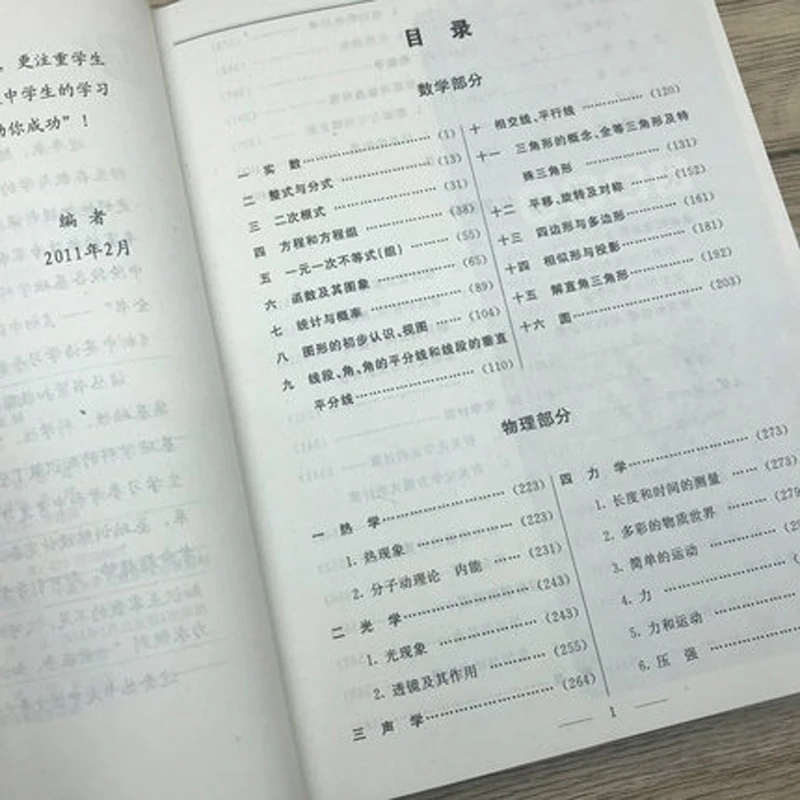 ，更注重学生
中学生的学习
你成功”！
编 者
2011年2月
目 录
数学部分
一 实 数……(1)
二 整式与分式……(13)
三 二次根式……(31)
四 方程和方程组……(38)
五 一元一次不等式(组)……(55)
六 函数及其图象……(65)
七 统计与概率……(89)
八 图形的初步认识、视图……(104)
九 线段、角、角的平分线和线段的垂直
平分线……(110)
十 相交线、平行线……(120)
十一 三角形的概念、全等三角形及特
殊三角形……(131)
十二 平移、旋转及对称……(152)
十三 四边形与多边形……(161)
十四 相似形与投影……(181)
十五 解直角三角形……(192)
十六 圆……(203)
物理部分
一 热 学……(223)
1. 热现象……(223)
2. 分子动理论 内能……(231)
二 光 学……(243)
1. 光现象……(243)
2. 透镜及其作用……(255)
三 声 学……(264)
四 力 学……(273)
1. 长度和时间的测量……(273)
2. 多彩的物质世界……(279
3. 简单的运动……
4. 力……
5. 力和运动……
6. 压 强……
1